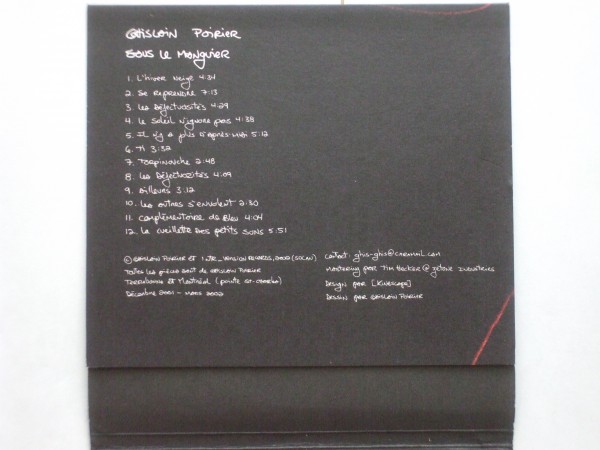 Ghislain Poirier
Sous le Manguier
1. L'hiver neige 4:34
2. Se reprendre 7:13
3. Les Défectuosités 4:29
4. Le soleil n'ignore pas 4:38
5. Il n'y a plus d'après-midi 5:12
6. Ti 3:32
7. Tarpinouche 2:48
8. Les Défectuosités 4:09
9. Ailleurs 3:12
10. Les autres s'envolent 2:30
11. Complémentaire de bleu 4:04
12. La cueillette des petits sons 5:51
© Ghislain Poirier et Intr_version records, 2002 (SOCAN)
Toutes les pièces sont de Ghislain Poirier
Terrebonne et Montréal (Pointe St-Charles)
Décembre 2001 - mars 2002
contact: ghis-ghis@caramail.com
mastering par Tim Hecker @ Jetone Industries
Design par [Kinescope]
Dessin par Ghislain Poirier